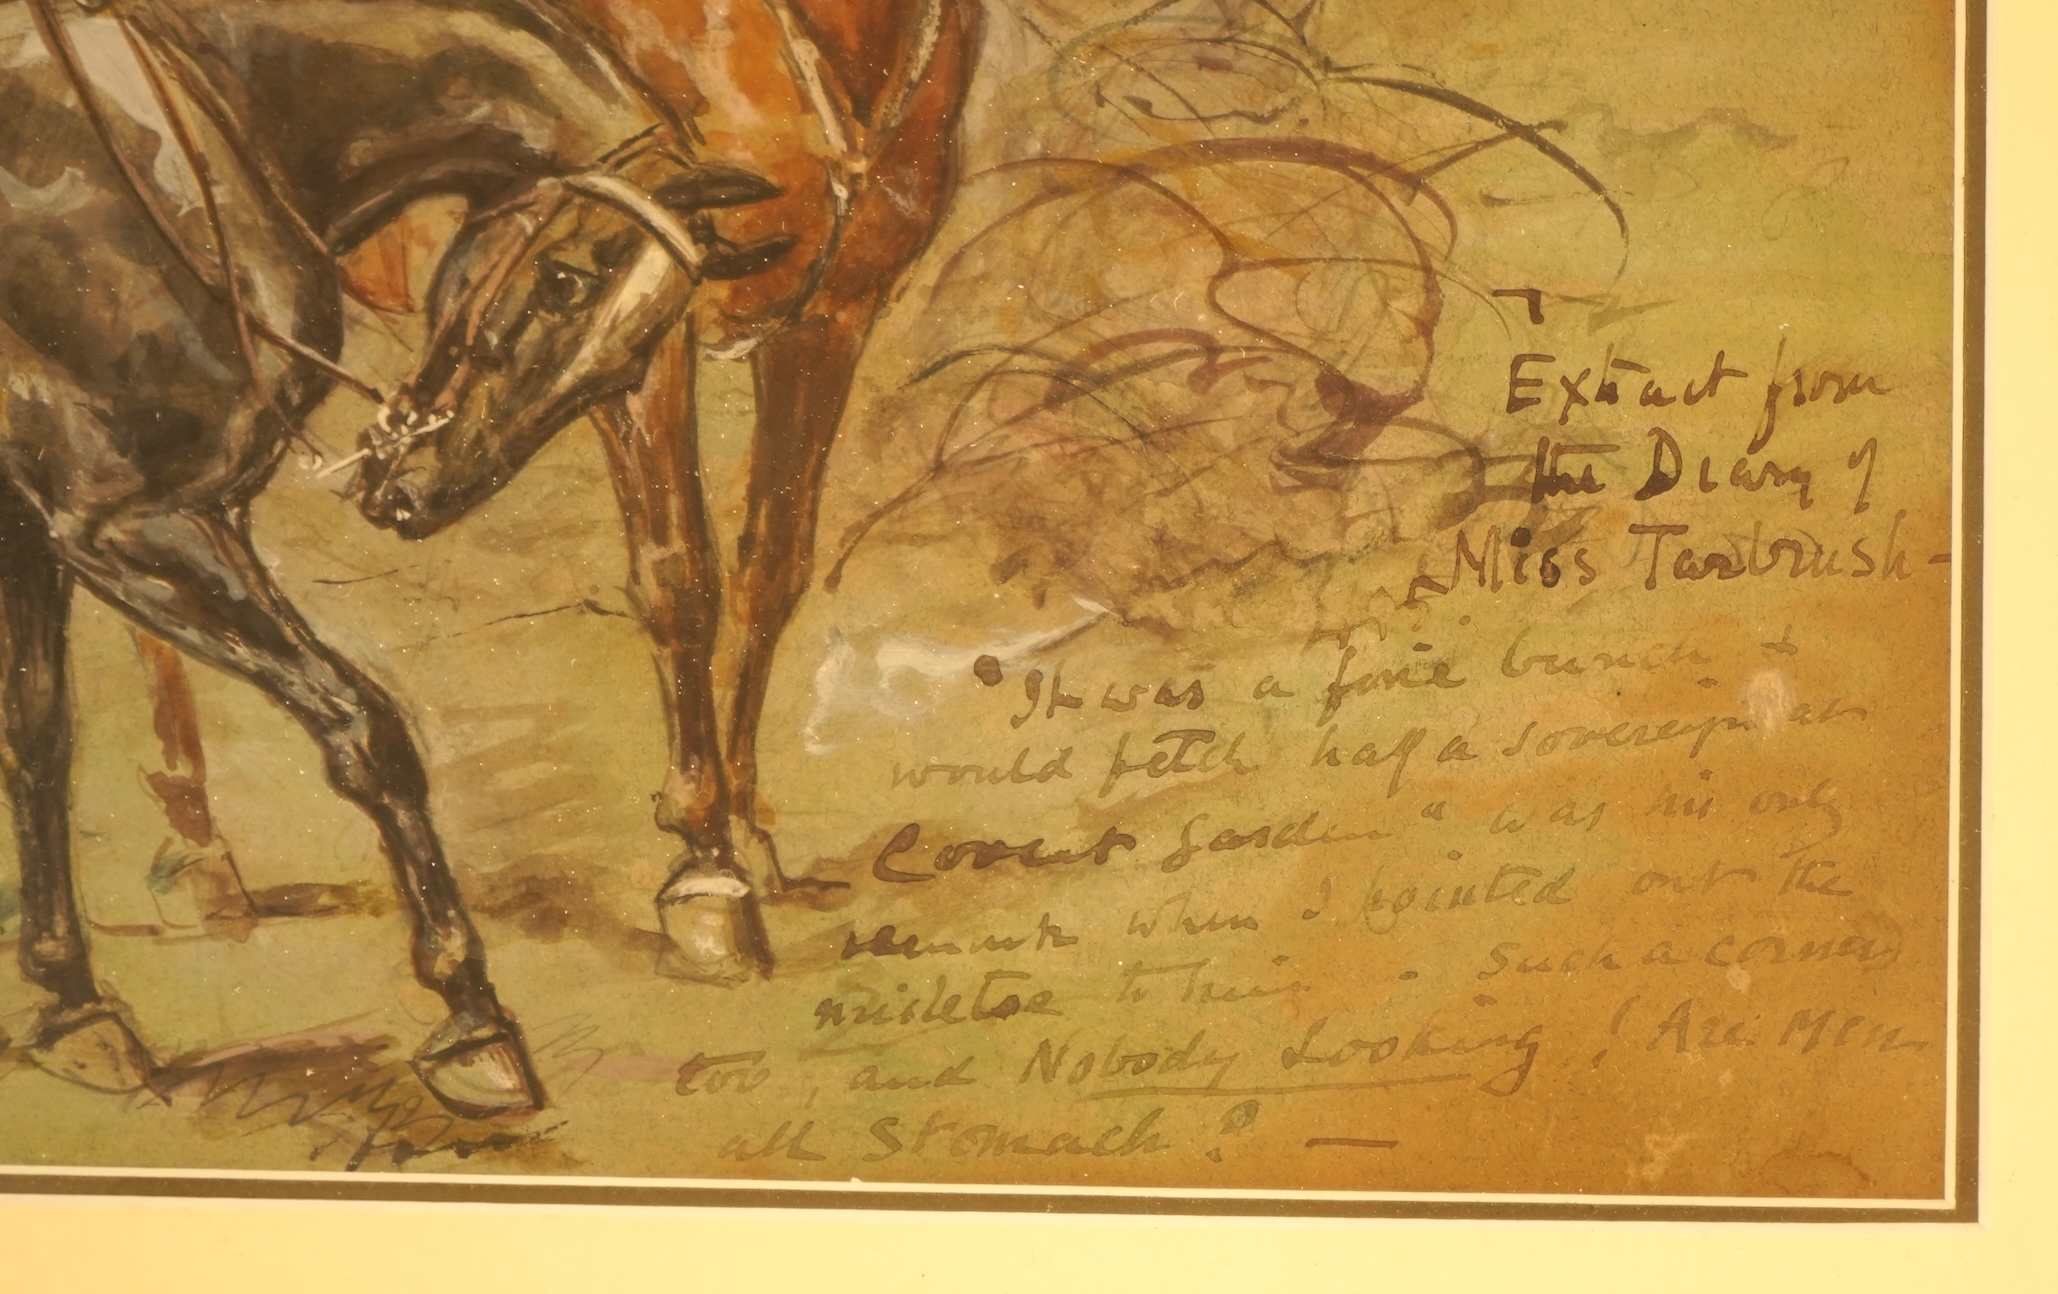 Extract from
the Diary of
Miss Tarbrush -
"It was a fine bunch +
would fetch half a sovereign at
Covent Garden" was his only
remark when I pointed out the
misletoe to him - Such a corner
too, and Nobody Looking! Are Men
all Stomach? —